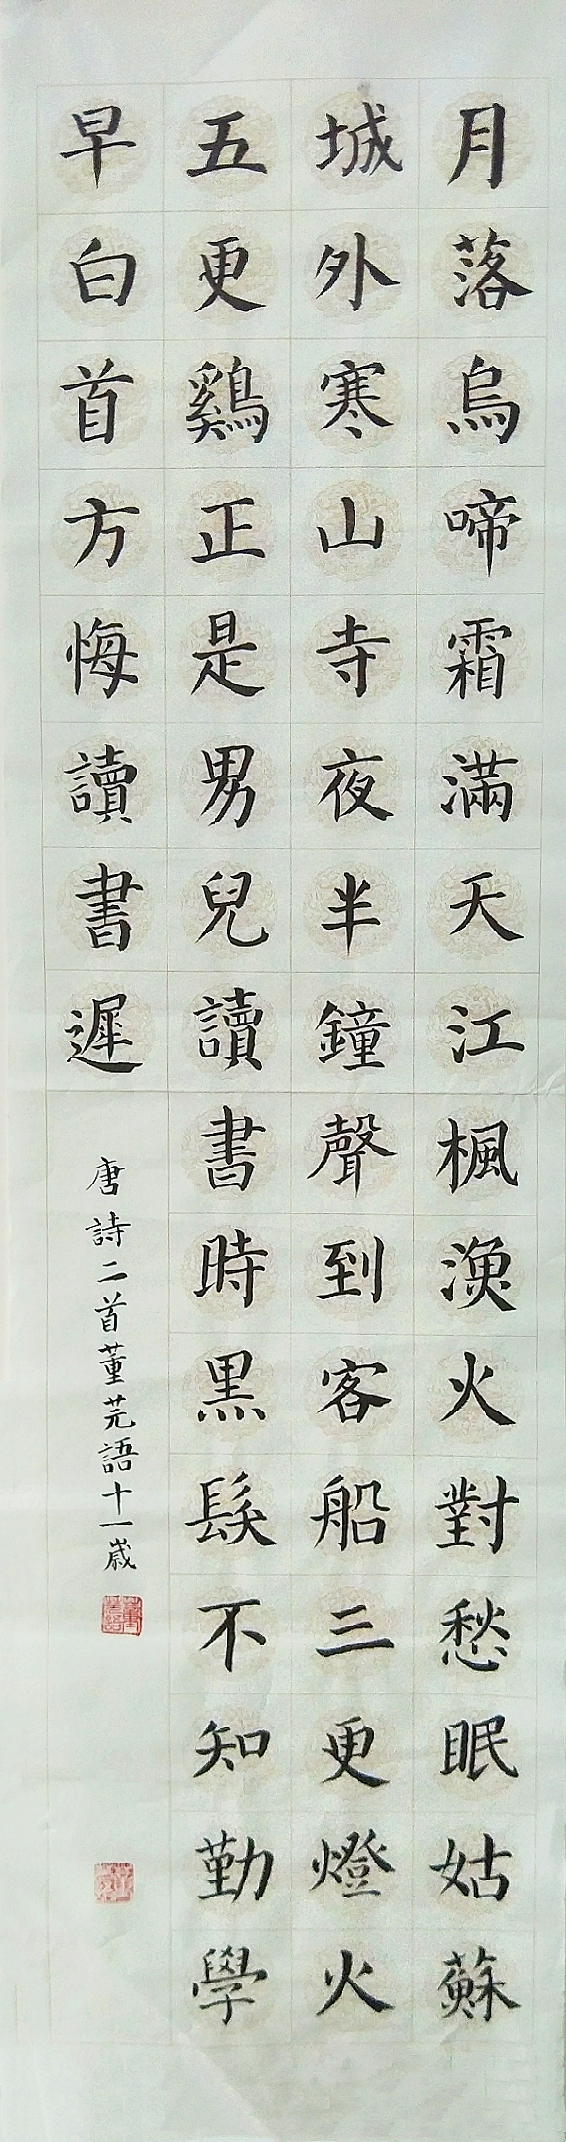 月落烏啼霜滿天江楓漁火對愁眠姑蘇
城外寒山寺夜半鐘聲到客船三更燈火
五更鷄正是男兒讀書時黑髮不知勤學
早白首方悔讀書遲
唐詩二首董芫語十一歲